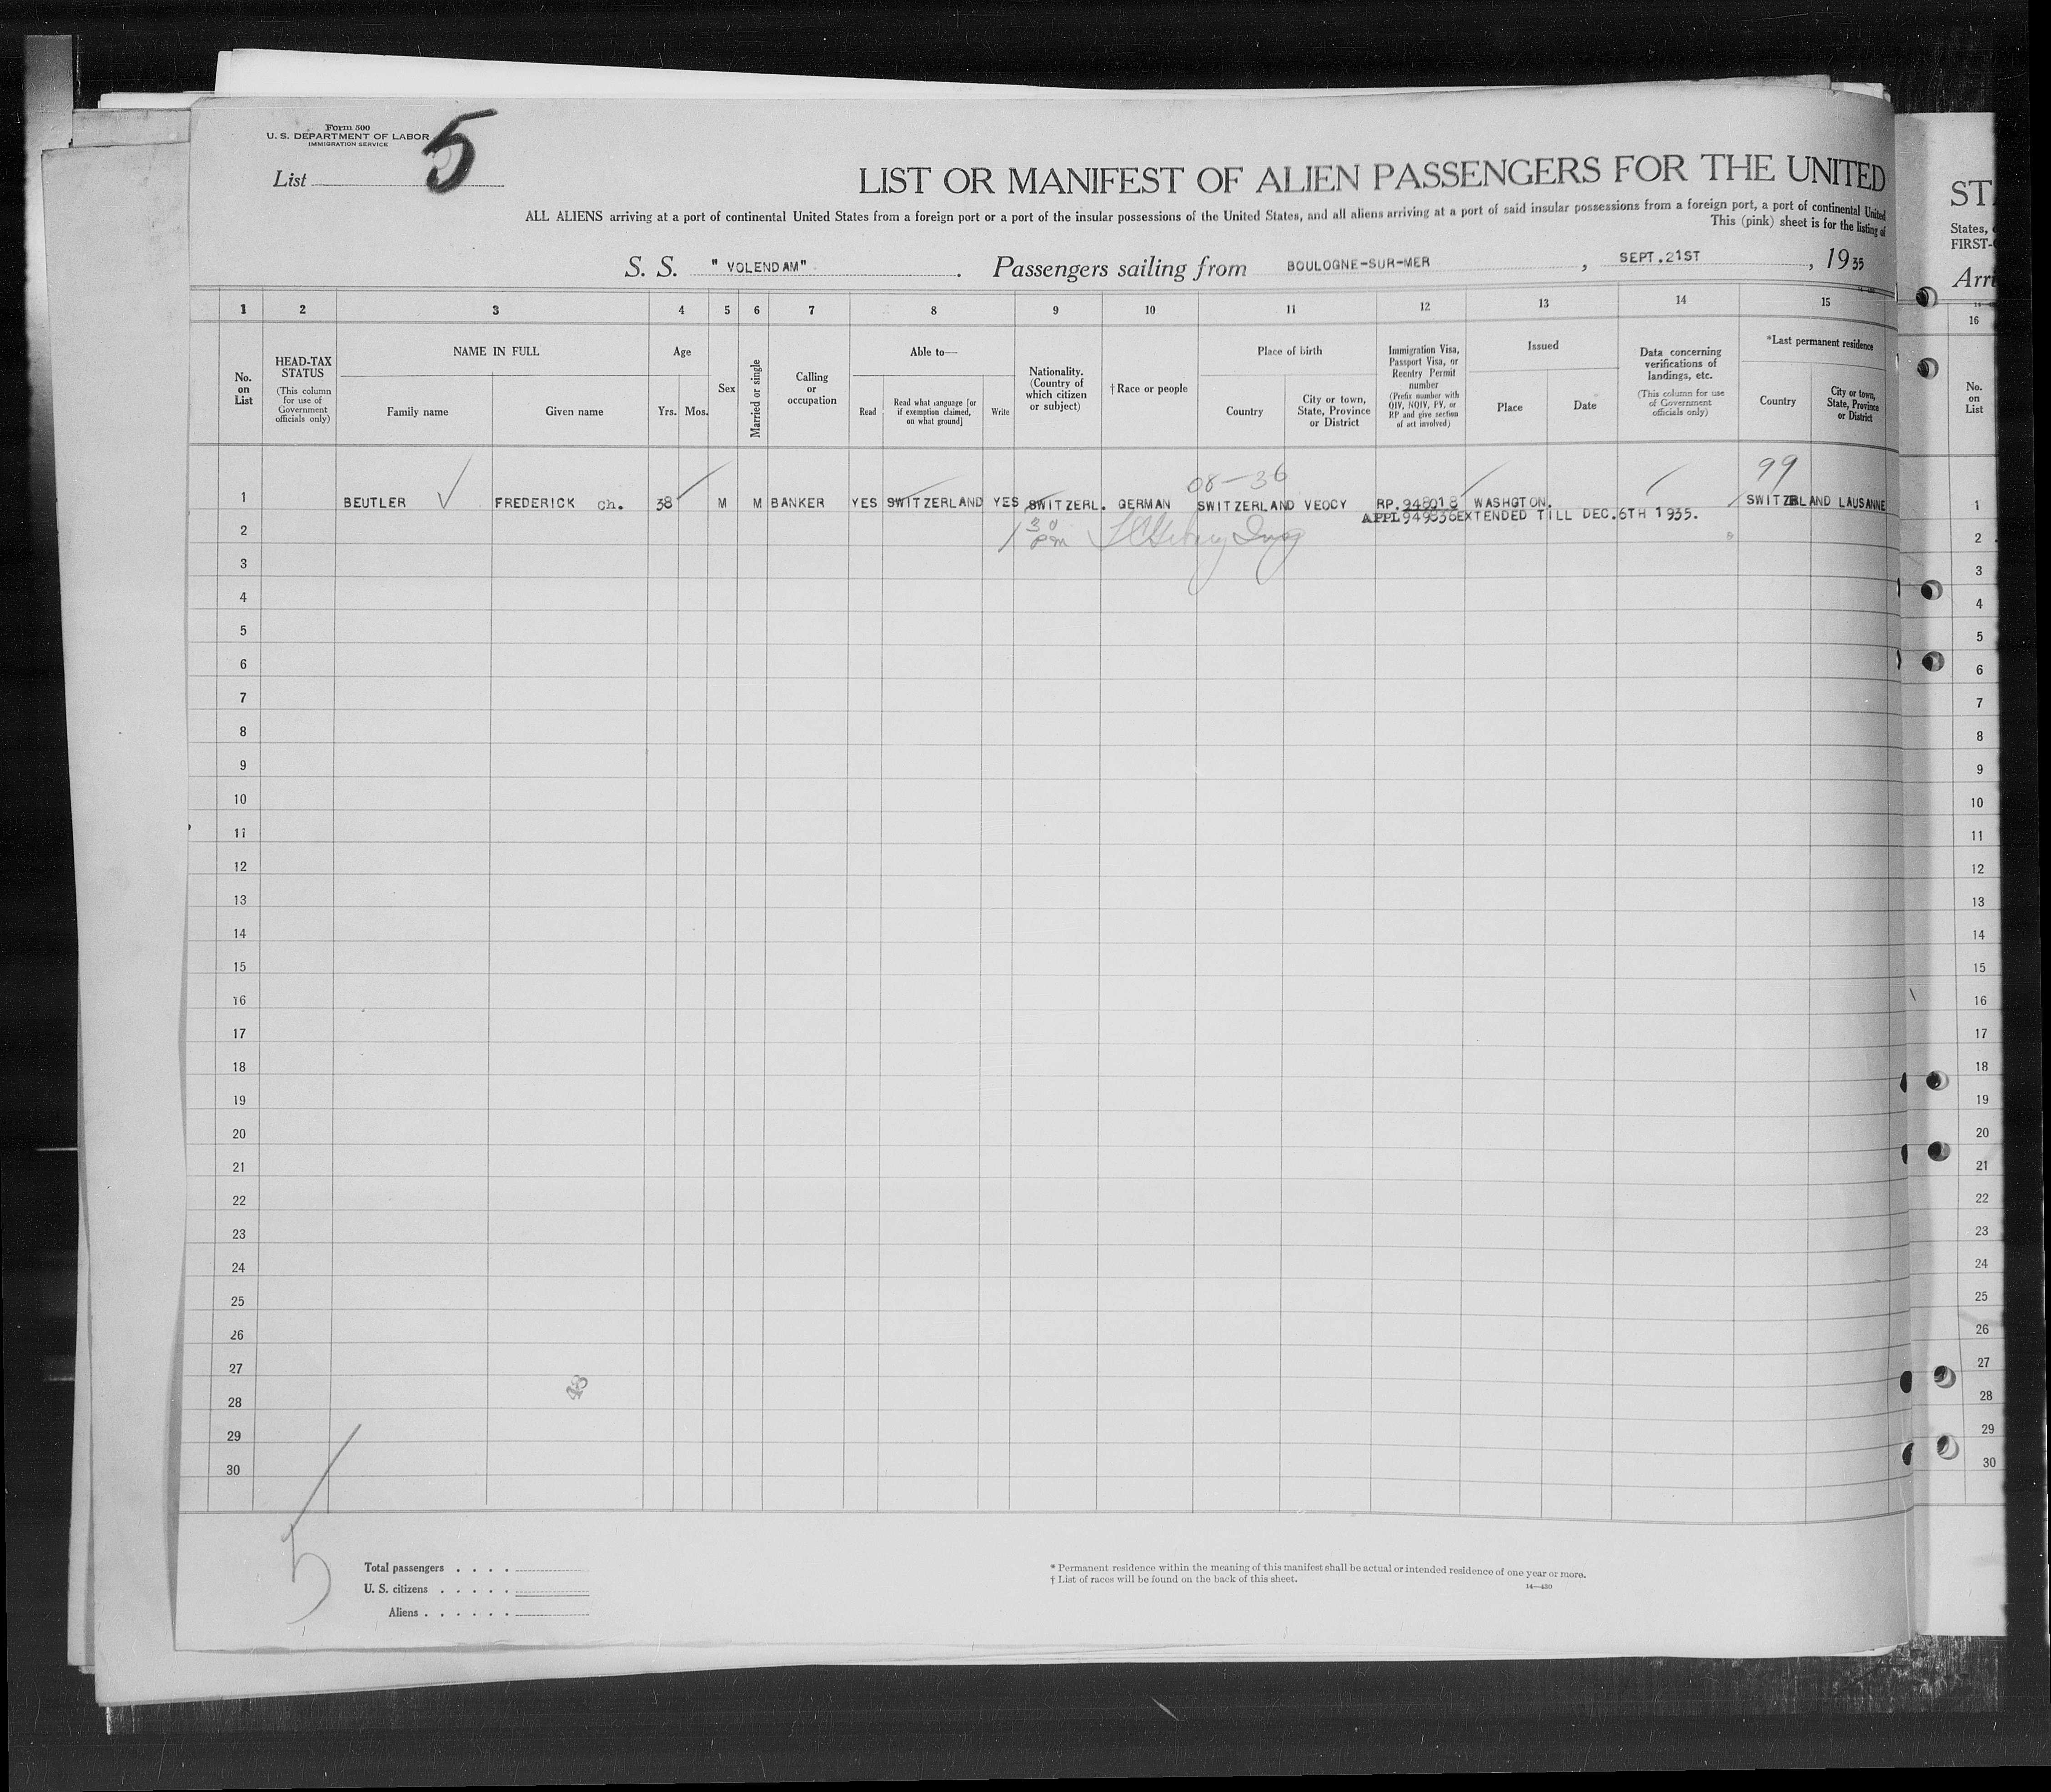 Form 500
U. S. DEPARTMENT OF LABOR
IMMIGRATION SERVICE
List 5
LIST OR MANIFEST OF ALIEN PASSENGERS FOR THE UNITED
ALL ALIENS arriving at a port of continental United States from a foreign port or a port of the insular possessions of the United States, and all aliens arriving at a port of said insular possessions from a foreign port, a port of continental United
This (pink) sheet is for the listing of
S. S. "VOLENDAM". Passengers sailing from BOULOGNE-SUR-MER, SEPT.21ST, 1935
ST
States,
FIRST-
Arri
1 2 3 4 5 6 7 8 9 10 11 12 13 14 15 16
No. on List
HEAD-TAX STATUS
(This column for use of Government officials only)
NAME IN FULL
Family name
Given name
Age
Yrs. Mos.
Sex
Married or single
Calling or occupation
Able to—
Read
Read what language [or if exemption claimed, on what ground]
Write
Nationality. (Country of which citizen or subject)
† Race or people
Place of birth
Country
City or town, State, Province or District
Immigration Visa, Passport Visa, or Reentry Permit number
(Prefix number with QIV, NQIV, PV, or RP and give section of act involved)
Issued
Place
Date
Data concerning verifications of landings, etc.
(This column for use of Government officials only)
*Last permanent residence
Country
City or town, State, Province or District
No. on List
08-36
99
1 BEUTLER FREDERICK Ch. 38 M M BANKER YES SWITZERLAND YES SWITZERL. GERMAN SWITZERLAND VEOCY RP. 948018 WASHGTON. SWITZERLAND LAUSANNE 1
APPL 949836 EXTENDED TILL DEC.6TH 1935.
2 1 30 pm Insp 2
3 3
4 4
5 5
6 6
7 7
8 8
9 9
10 10
11 11
12 12
13 13
14 14
15 15
16 16
17 17
18 18
19 19
20 20
21 21
22 22
23 23
24 24
25 25
26 26
27 27
43
28 28
29 29
30 30
5
Total passengers . . . .
U. S. citizens . . . . .
Aliens . . . . . .
* Permanent residence within the meaning of this manifest shall be actual or intended residence of one year or more.
† List of races will be found on the back of this sheet.
14—430